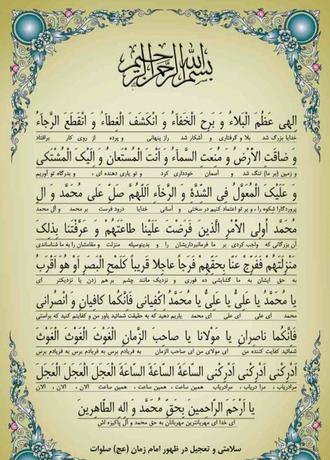 بسم الله الرحمن الرحیم
الهِی عَظُمَ الْبَلاءُ وَ بَرِحَ الْخَفاءُ وَ انْکَشَفَ الْغِطاءُ وَ انْقَطَعَ الرَّجاءُ
خدایا بزرگ شد بلا و گرفتاری و آشکار شد راز پنهانی و پرده از روی کار برافتاد
وَ ضاقَتِ الْاَرْضُ وَ مُنِعَتِ السَّماءُ وَ اَنْتَ الْمُسْتَعانُ وَ اِلَیْکَ الْمُشْتَکی
و زمین (بر ما) تنگ شد و آسمان خودداری کرد و تو یاری دهنده ای ، و بدرگاه تو آوریم
وَ عَلَیْکَ الْمُعَوَّلُ فِی الشِّدَّةِ وَ الرَّخاءِ اَللّهُمَّ صَلِّ عَلی مُحَمَّد وَ الِ
پروردگارا شکوه را ، و بر تو اعتماد کنیم در سختی و آسانی خدایا درود فرست بر محمد و آل محمد
مُحَمَّد اُولِی الْاَمْرِ الَّذینَ فَرَضْتَ عَلَیْنا طاعَتَهُم وَ عَرَّفْتَنا بِذلِکَ
آن بزرگانی که واجب کردی بر ما فرمانبرداریشان را و بدینوسیله منزلت و مقامشان را به ما شناساندی
مَنْزِلَتَهُمْ فَفَرِّجْ عَنّا بِحَقِّهِم فَرَجاً عاجِلاً قَریباً کَلَمْحِ الْبَصَرِ اَوْ هُوَ اَقْرَبُ
به حق ایشان به ما گشایشی ده فوری و نزدیک مانند چشم بر هم زدن یا نزدیکتر ای
یا مُحَمَّدُ یا عَلِیُّ یا عَلِیُّ یا مُحَمَّدُ اِکْفِیانی فَاِنَّکُما کافِیانِ وَ انْصُرانی
محمد ای علی ای علی ای محمد یاریم دهید که به حقیقت شمائید یاور من و کفایتم کنید که براستی
فَاِنَّکُما ناصِرانِ یا مَوْلانا یا صاحِبَ الزَّمانِ الْغَوْثَ الْغَوْثَ الْغَوْثَ
شمائید کفایت کننده من ای مولای من ای صاحب الزمان به فریادم برس به فریادم برس به فریادم برس
اَدْرِکْنی اَدْرِکْنی اَدْرِکْنی السّاعَةَ السّاعَةَ السّاعَةَ الْعَجَلَ الْعَجَلَ الْعَجَلَ
مرادریاب ، مرا دریاب ، مرادریاب ، همین ساعت ، همین ساعت ، همین ساعت ، الان ، الان ، الان
یا اَرْحَمَ الرّاحِمینَ بِحَقِّ مُحَمَّد وَ الِهِ الطّاهِرینَ
ای خدا ای مهربانترین مهربانان به حق محمد و آل پاکیزه اش
سلامتی و تعجیل در ظهور امام زمان (عج) صلوات